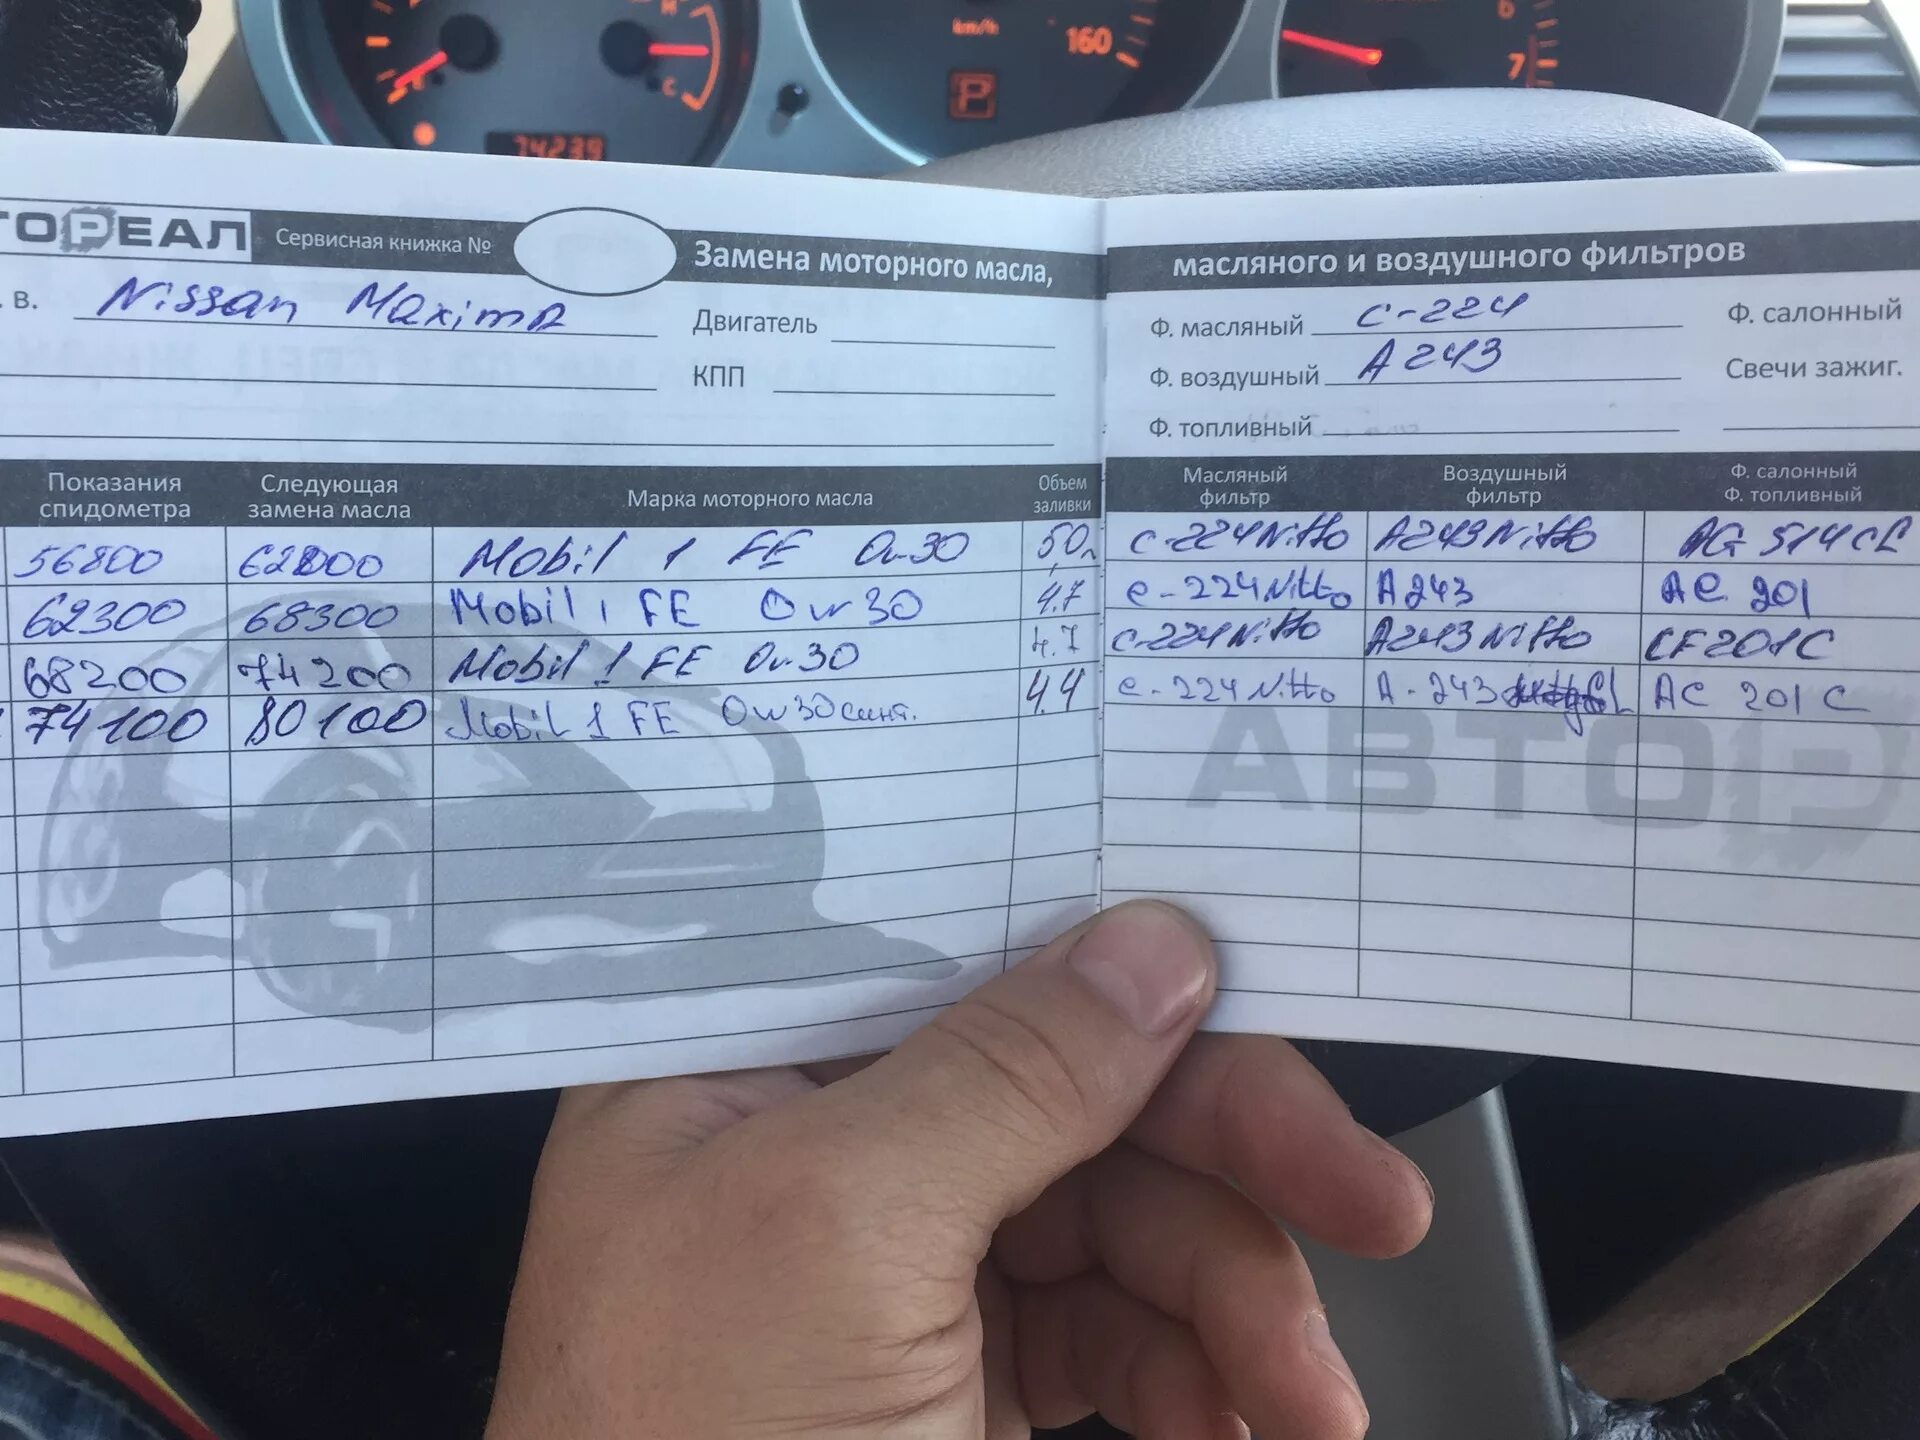 km/h
160
P
6
7
H
C
74239
ТОРЕАЛ Сервисная книжка №
Замена моторного масла, масляного и воздушного фильтров
. в. Nissan Maxima
Двигатель
КПП
Ф. масляный C-224
Ф. салонный
Ф. воздушный A243
Свечи зажиг.
Ф. топливный
Показания спидометра
Следующая замена масла
Марка моторного масла
Объем заливки
Масляный фильтр
Воздушный фильтр
Ф. салонный
Ф. топливный
56800 62800 Mobil 1 FE 0w30 5,0л C-224 Nitto A243 Nitto
62300 68300 Mobil 1 FE 0w30 4.7 C-224 Nitto A243 AC 201
68200 74200 Mobil 1 FE 0w30 4.7 C-224 Nitto A243 Nitto CF201C
74100 80100 Mobil 1 FE 0w30 синт. 4.4 C-224 Nitto A-243 AC 201 C
АВТОР